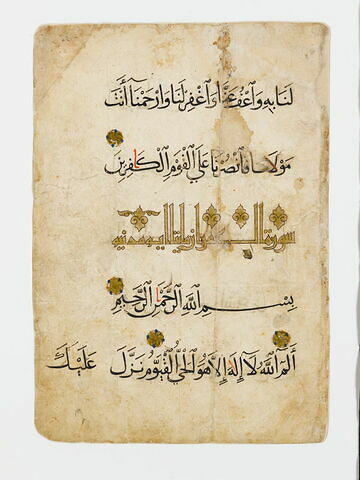 لَنَا بِهِ وَاعْفُ عَنَّا وَاغْفِرْ لَنَا وَارْحَمْنَا أَنْتَ
مَوْلَانَا فَانْصُرْنَا عَلَى الْقَوْمِ الْكَافِرِينَ
سورة
بِسْمِ اللَّهِ الرَّحْمَنِ الرَّحِيمِ
الم اللَّهُ لَا إِلَهَ إِلَّا هُوَ الْحَيُّ الْقَيُّومُ نَزَّلَ عَلَيْكَ